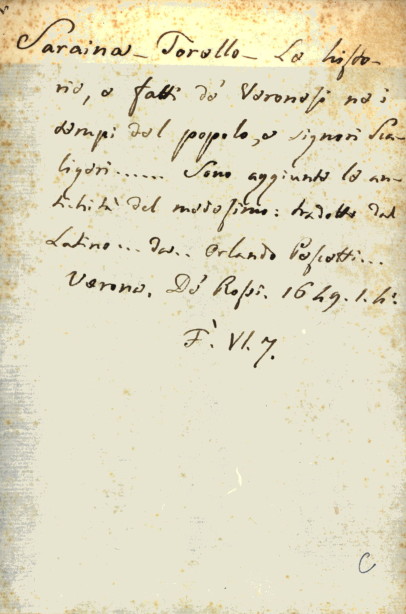 Saraina - Torello - Le histo-
rie, e fatti de' Veronesi ne i
tempi del popolo, e signori Sca-
ligeri...... Sono aggiunte le an-
tichità del medesimo: tradotte dal
Latino... da.. Orlando Pescetti...
Verona. De' Rossi. 1649. 1. 4°.
F. VI. 7.
C